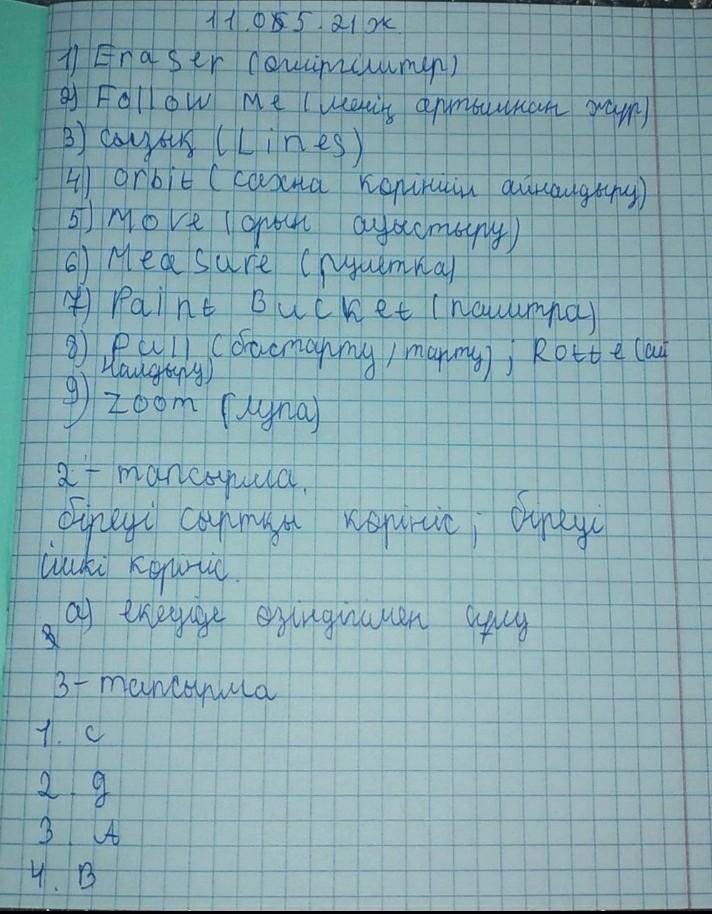 11.05.21ж
1) Eraser (өшіргіштер)
2) Follow Me (менің артымнан жүр)
3) сызық (Lines)
4) Orbit (сахна көрінішін айналдыру)
5) Move (орын ауыстыру)
6) Measure (рулетка)
7) Paint Bucket (палитра)
8) Pull (бастарту, тарту); Rotte (ай
налдыру)
9) Zoom (лупа)
2 - тапсырма.
біреуі сыртқы көрініс; біреуі
ішкі көрініс.
а) екеуіде өзіндігімен әдемі
3 - тапсырма
1. c
2. g
3. A
4. B